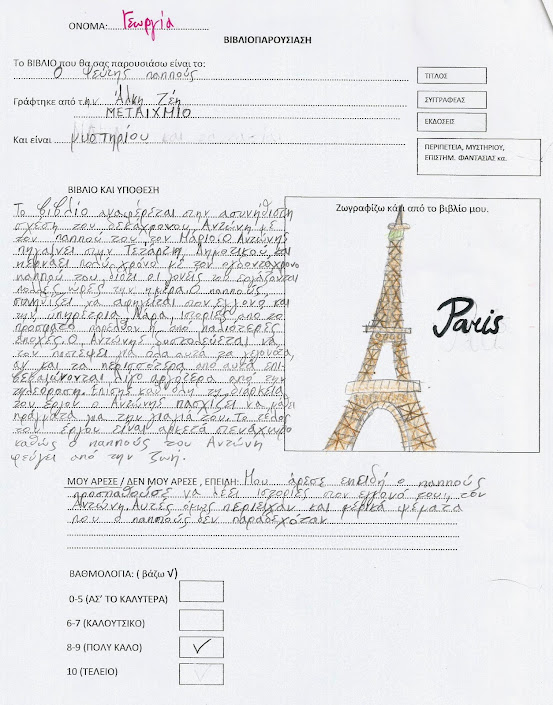 ΟΝΟΜΑ: Γεωργία
ΒΙΒΛΙΟΠΑΡΟΥΣΙΑΣΗ
Το ΒΙΒΛΙΟ που θα σας παρουσιάσω είναι το:
Ο ψεύτης παππούς
ΤΙΤΛΟΣ
Γράφτηκε από την Άλκη Ζέη
ΣΥΓΓΡΑΦΕΑΣ
ΜΕΤΑΙΧΜΙΟ
ΕΚΔΟΣΕΙΣ
Και είναι μυστηρίου
ΠΕΡΙΠΕΤΕΙΑ, ΜΥΣΤΗΡΙΟΥ,
ΕΠΙΣΤΗΜ. ΦΑΝΤΑΣΙΑΣ κα.
ΒΙΒΛΙΟ ΚΑΙ ΥΠΟΘΕΣΗ
Το βιβλίο αναφέρεται στην ασυνήθιστη
σχέση του δεκάχρονου Αντώνη με
τον παππού του τον Μάριο. Ο Αντώνης
πηγαίνει στην Τετάρτη Δημοτικού και
περνάει πολύ χρόνο με τον ογδοντάχρονο
παππού του διότι οι γονείς του εργάζονται
πολλές ώρες την ημέρα. Ο παππούς
συνηθίζει να αφηγείται στον έγγονο και
την υπηρέτρια, Νάρα, ιστορίες από το
πρόσφατο παρελθόν ή από παλιότερες
εποχές. Ο Αντώνης δυσκολεύεται να
τον πιστέψει για όλα αυτά τα γεγονότα,
αν και τα περισσότερα από αυτά επι-
βεβαιώνονται λίγο αργότερα από την
τηλεόραση. Επίσης καθ'όλη τη διάρκεια
του έργου ο Αντώνης πασχίζει να μάθει
πράγματα για την γιαγιά του. Το τέλος
του έργου είναι αρκετά στενάχωρο
καθώς ο παππούς του Αντώνη
φεύγει από την ζωή.
Ζωγραφίζω κάτι από το βιβλίο μου.
Paris
ΜΟΥ ΑΡΕΣΕ / ΔΕΝ ΜΟΥ ΑΡΕΣΕ , ΕΠΕΙΔΗ: Μου άρεσε επειδή ο παππούς
προσπαθούσε να λέει ιστορίες στον εγγονό του, τον
Αντώνη. Αυτές όμως περιείχαν και μερικά ψέματα
που ο παππούς δεν παραδεχόταν
ΒΑΘΜΟΛΟΓΙΑ: ( βάζω √)
0-5 (ΑΣ' ΤΟ ΚΑΛΥΤΕΡΑ)
6-7 (ΚΑΛΟΥΤΣΙΚΟ)
8-9 (ΠΟΛΥ ΚΑΛΟ) ✓
10 (ΤΕΛΕΙΟ)